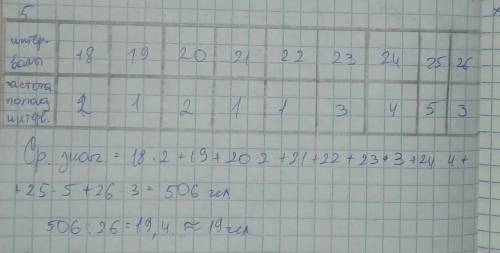 5
интер-
валы 18 19 20 21 22 23 24 25 26
частота
попад.
интерв. 2 1 2 1 1 3 4 5 3
Ср. знач = 18 · 2 + 19 + 20 · 2 + 21 + 22 + 23 · 3 + 24 · 4 +
+ 25 · 5 + 26 · 3 = 506 чел
506 : 26 = 19,4 ≈ 19 чел